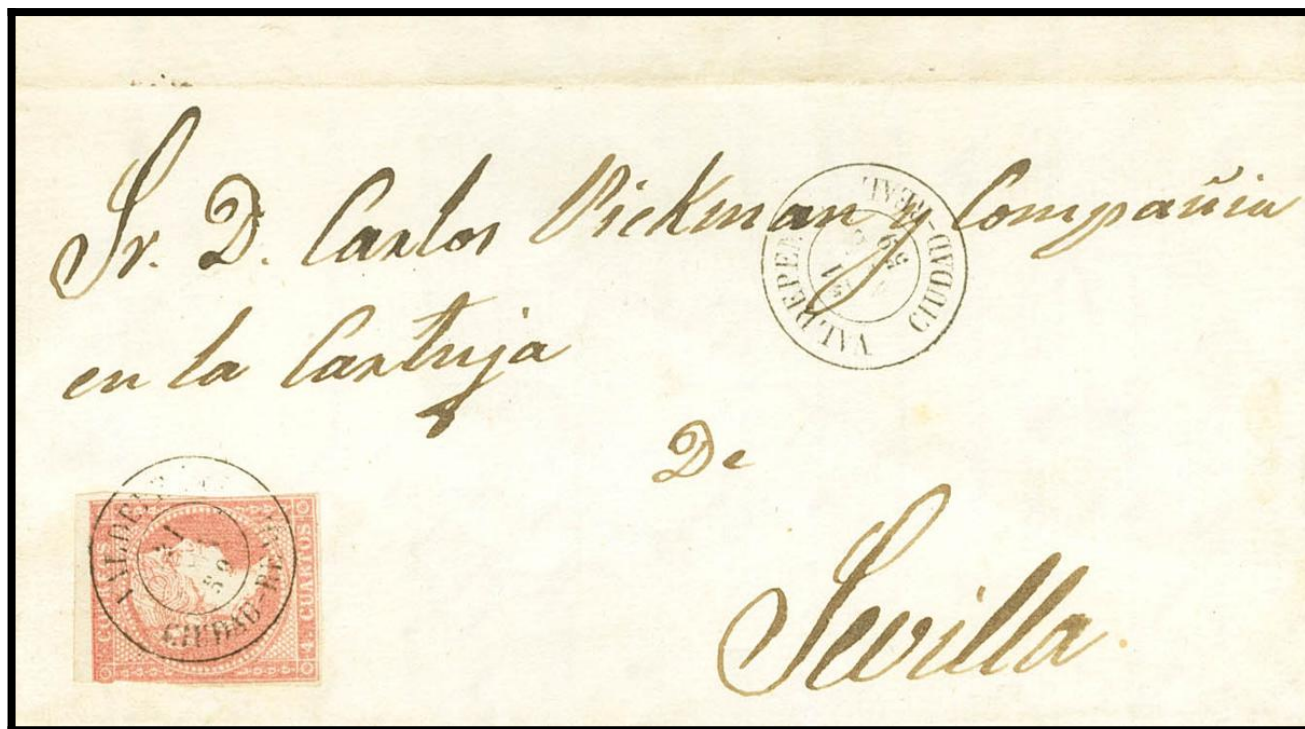 Sr. D. Carlos Pickman y Compañia
en la Cartuja
De
Sevilla.
VALDEPEÑ
CIUDAD-REAL
59
VALDEPE
21
59
CIUDAD-REAL
CORREOS
4 CUARTOS